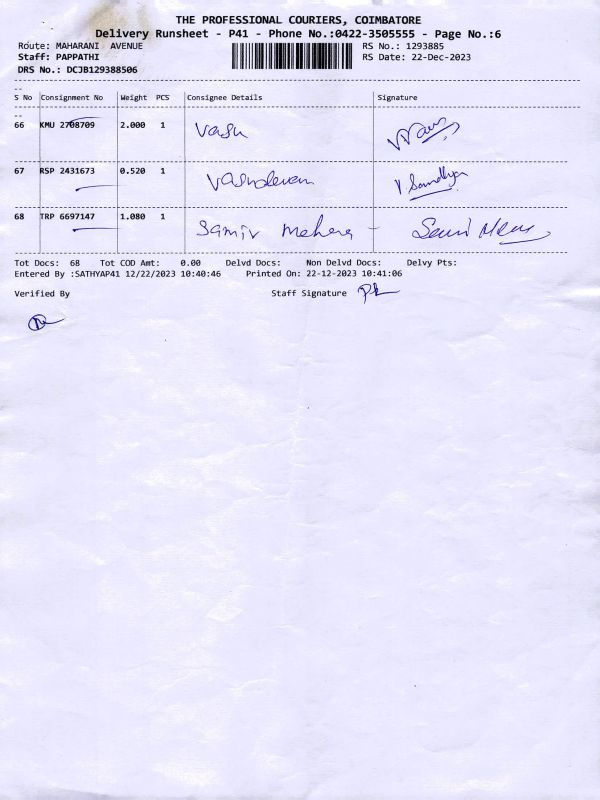 THE PROFESSIONAL COURIERS, COIMBATORE
Delivery Runsheet - P41 - Phone No.:0422-3505555 - Page No.:6
Route: MAHARANI AVENUE RS No.: 1293885
Staff: PAPPATHI RS Date: 22-Dec-2023
DRS No.: DCJB129388506
S No Consignment No Weight PCS Consignee Details Signature
66 KMU 2708709 2.000 1 Vasu
67 RSP 2431673 0.520 1 Vasudevan V Sandhya
68 TRP 6697147 1.080 1 Samir Mehera
Tot Docs: 68 Tot COD Amt: 0.00 Delvd Docs: Non Delvd Docs: Delvy Pts:
Entered By :SATHYAP41 12/22/2023 10:40:46 Printed On: 22-12-2023 10:41:06
Verified By Staff Signature